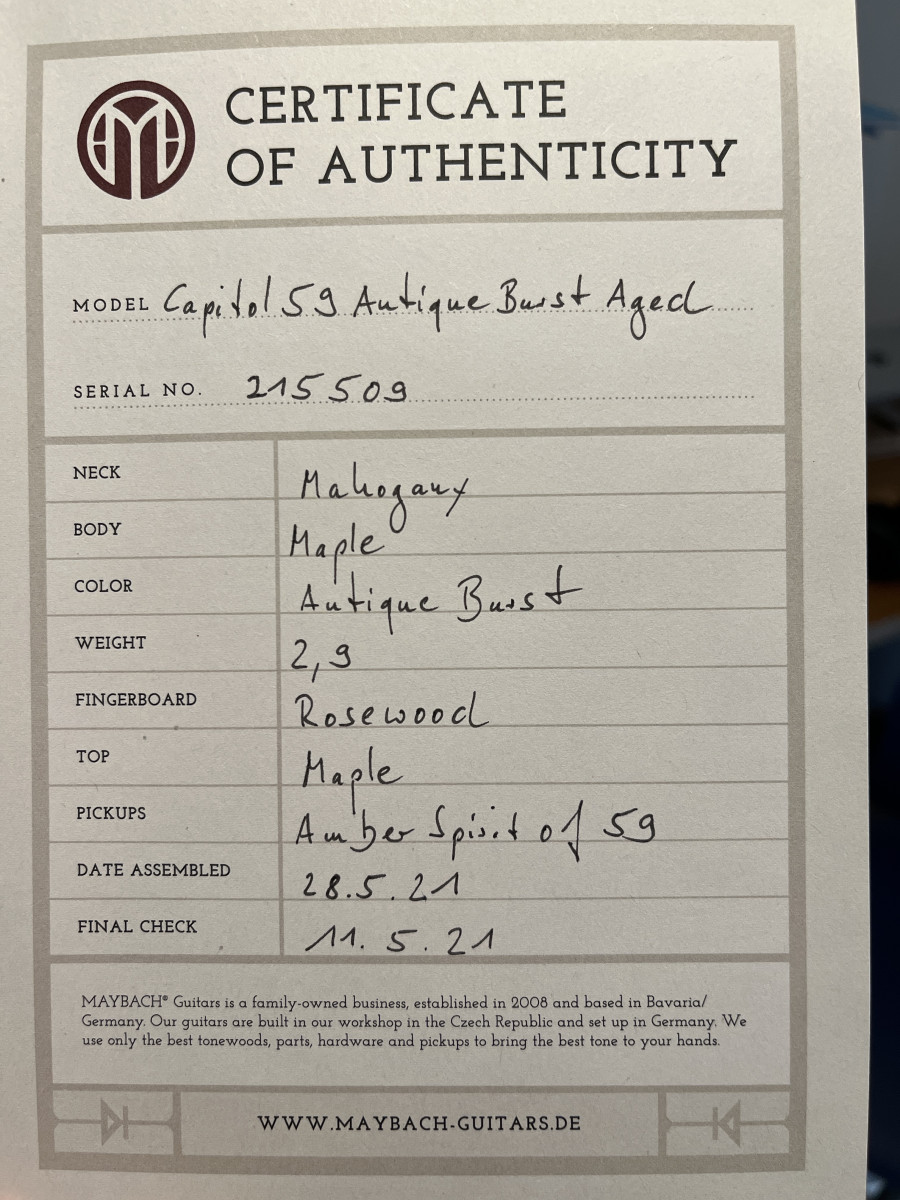 CERTIFICATE
OF AUTHENTICITY
MODEL Capitol 59 Antique Burst Aged
SERIAL NO. 215509
NECK Mahogany
BODY Maple
COLOR Antique Burst
WEIGHT 2,9
FINGERBOARD Rosewood
TOP Maple
PICKUPS Amber Spirit of 59
DATE ASSEMBLED 28.5.21
FINAL CHECK 11.5.21
MAYBACH® Guitars is a family-owned business, established in 2008 and based in Bavaria/
Germany. Our guitars are built in our workshop in the Czech Republic and set up in Germany. We
use only the best tonewoods, parts, hardware and pickups to bring the best tone to your hands.
WWW.MAYBACH-GUITARS.DE